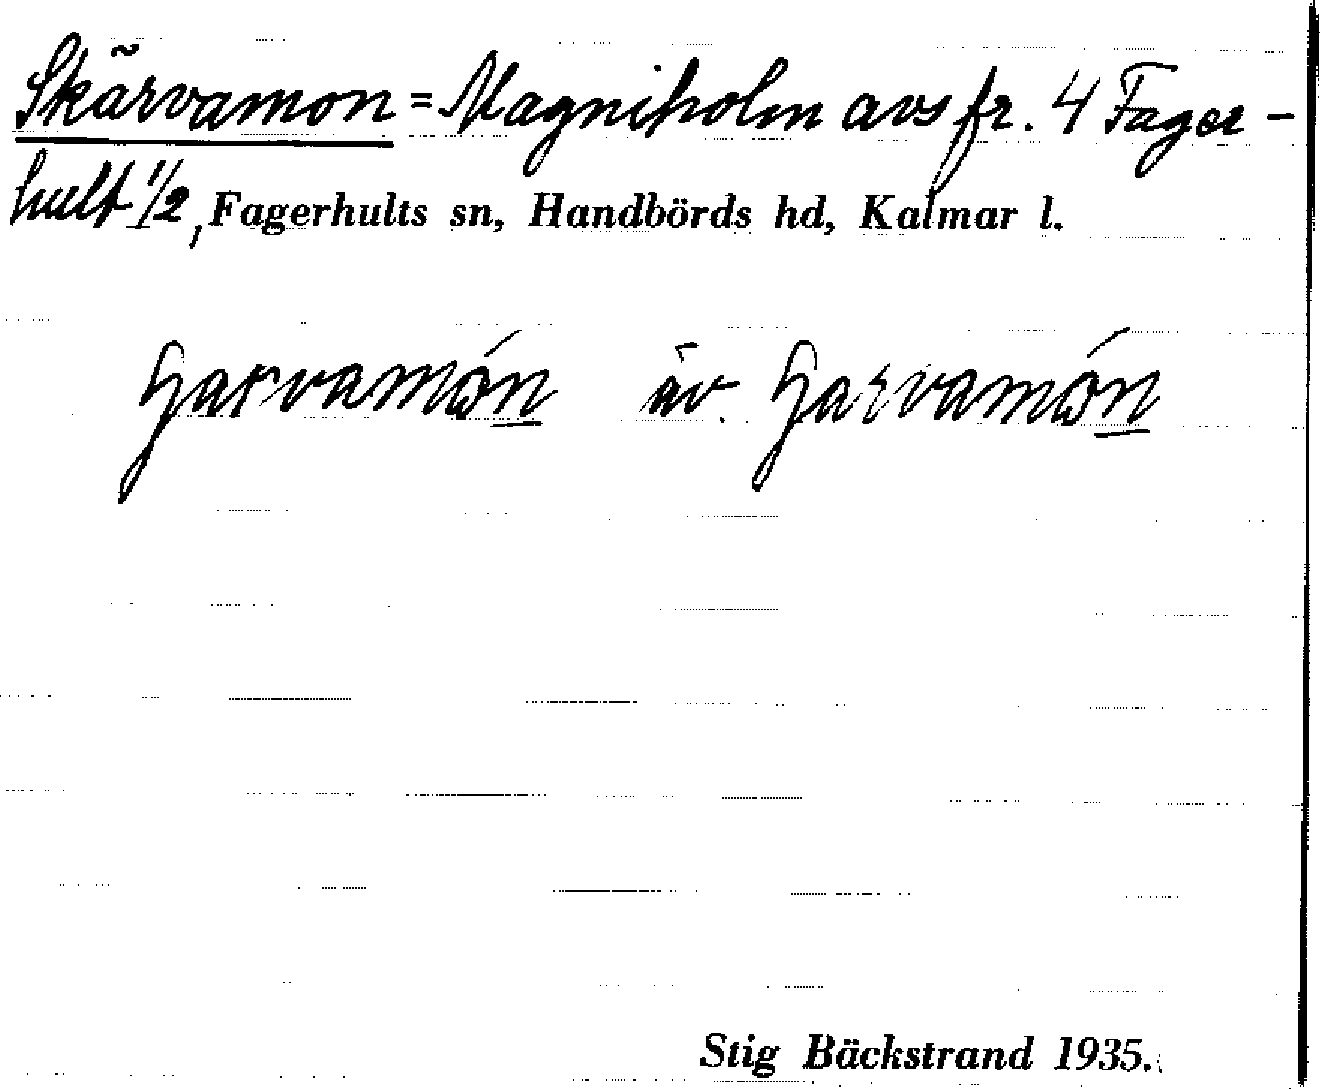 Skärvamon = Magniholm avs fr. 4 Fager-
hult 1/2, Fagerhults sn, Handbörds hd, Kalmar l.
äv.
Stig Bäckstrand 1935.